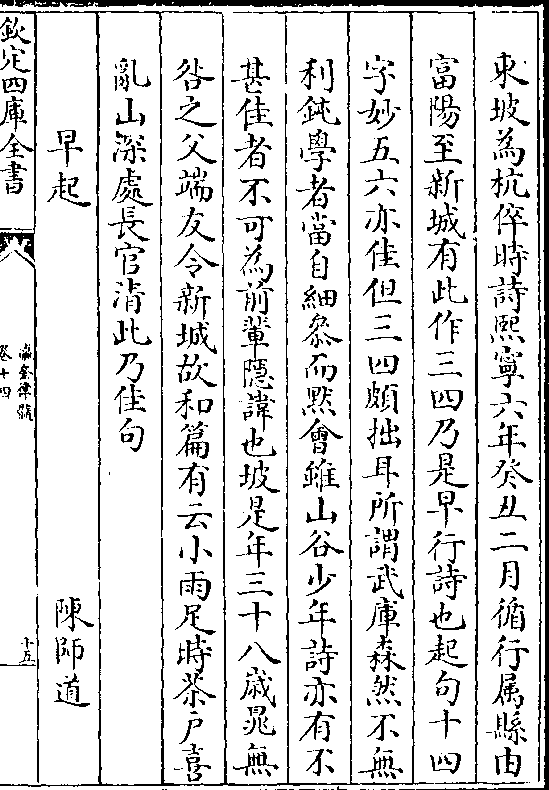 東坡為杭倅時詩熙寧六年癸丑二月循行属縣由
富陽至新城有此作三四乃是早行詩也起句十四
字妙五六亦佳但三四頗拙耳所謂武庫森然不無
利鈍學者當自細叅而黙會雖山谷少年詩亦有不
甚佳者不可為前輩隠諱也坡是年三十八歲晁無
咎之父端友令新城故和篇有云小雨足時茶戶喜
亂山深處長官清此乃佳句
早起 陳師道
欽定四庫全書
瀛奎律髓
卷十四
十五